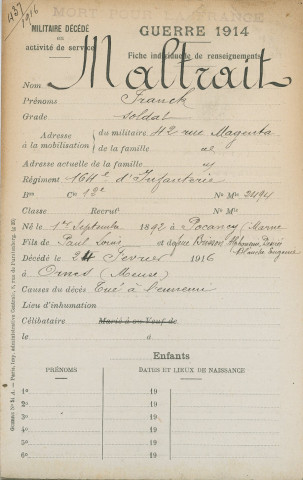 437/1916
MORT POUR LA FRANCE
MILITAIRE DÉCÉDÉ
en
activité de service
GUERRE 1914
Fiche individuelle de renseignements
Nom Maltrait
Prénoms Franck
Grade soldat
Adresse à la mobilisation du militaire 42 rue Magenta
de la famille id
Adresse actuelle de la famille id
Régiment 164e d'Infanterie
Bon Cie 12e No Mle 24194
Classe Recrut No Mle
Né le 1er Septembre 1892 à Pocancy (Marne
Fils de Paul Louis et de feue Buisson, Alphonsine
Blanche Eugénie
Décédé le 24 Février 1916
à Ornes (Meuse)
Causes du décès Tué à l'ennemi
Lieu d'inhumation
Célibataire Marié à ou Veuf de
le à
Enfants
PRÉNOMS DATES ET LIEUX DE NAISSANCE
1o 19
2o 19
3o 19
4o 19
5o 19
6o 19